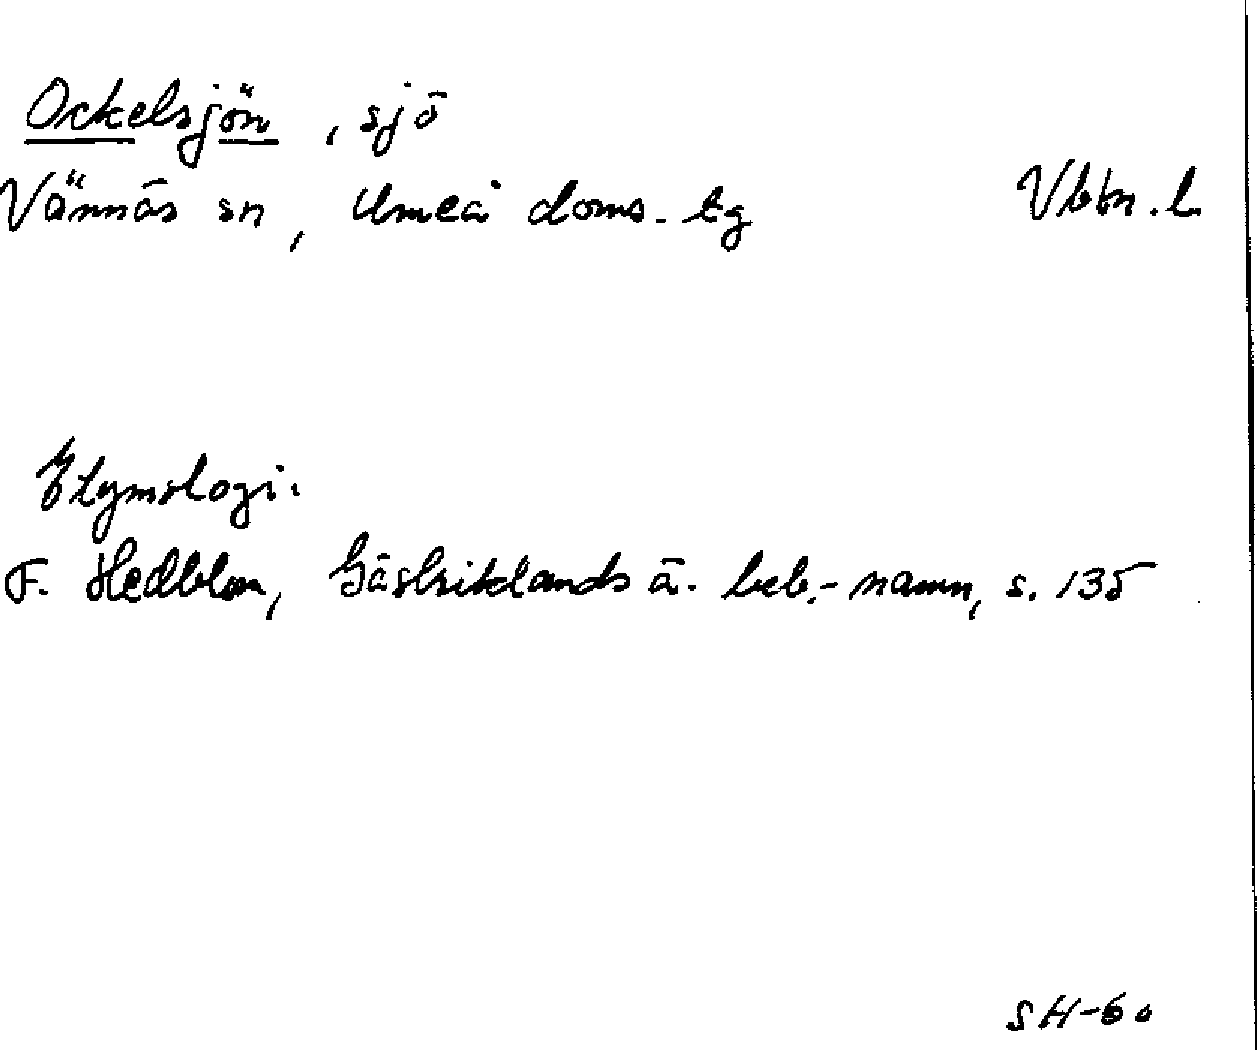 Ockelsjön, sjö
Vännäs sn, Umeå doms. tg Vbtn. l.
Etymologi.
F. Hedblom, Gästriklands ä. beb.-namn, s. 135
SH-60